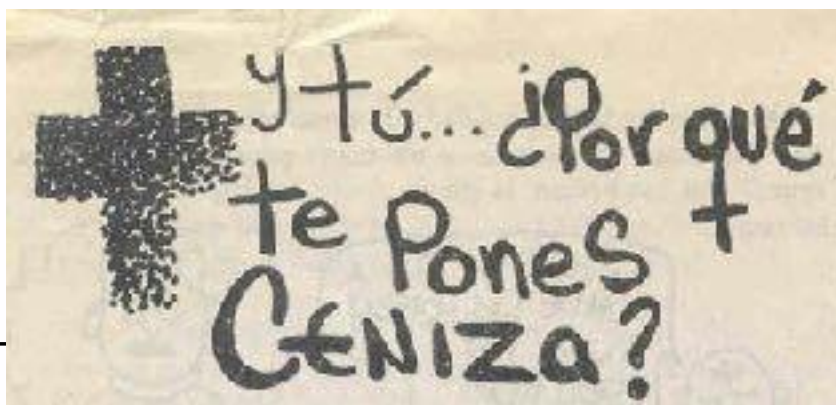 y tú... ¿Por qué
te Pones
CENIZa?